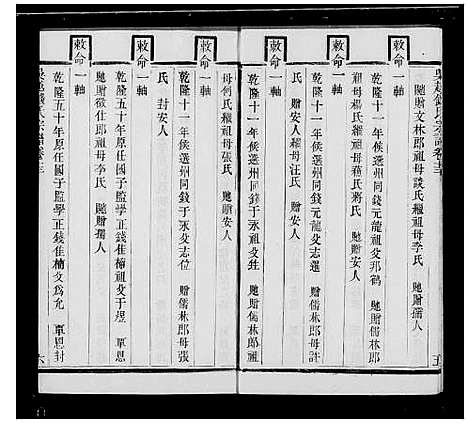 吳越錢氏宗譜卷十三
五
馳贈文林郎祖母談氏繼祖母李氏 馳贈孺人
敕命一軸
乾隆十一年候選州同錢元龍祖父邦鶴 馳贈儒林郎
母楊氏繼祖母蔣氏 馳贈安人
敕命一軸
乾隆十一年候選州同錢元龍父志選 贈儒林郎母許
氏 贈安人繼母汪氏 贈安人
敕命一軸
乾隆十一年候選州同錢于永祖父 馳贈儒林郎祖
母何氏繼祖母張氏 馳贈安人
敕命一軸
乾隆十一年候選州同錢于永父志位 贈儒林郎母張
氏 封安人
敕命一軸
乾隆五十年原任國子監學正錢佳楠祖父于煜 覃恩
馳贈徵仕郎祖母李氏 馳贈孺人
敕命一軸
乾隆五十年原任國子監學正錢佳楠父為允 覃恩封
吳越錢氏宗譜卷十三
六